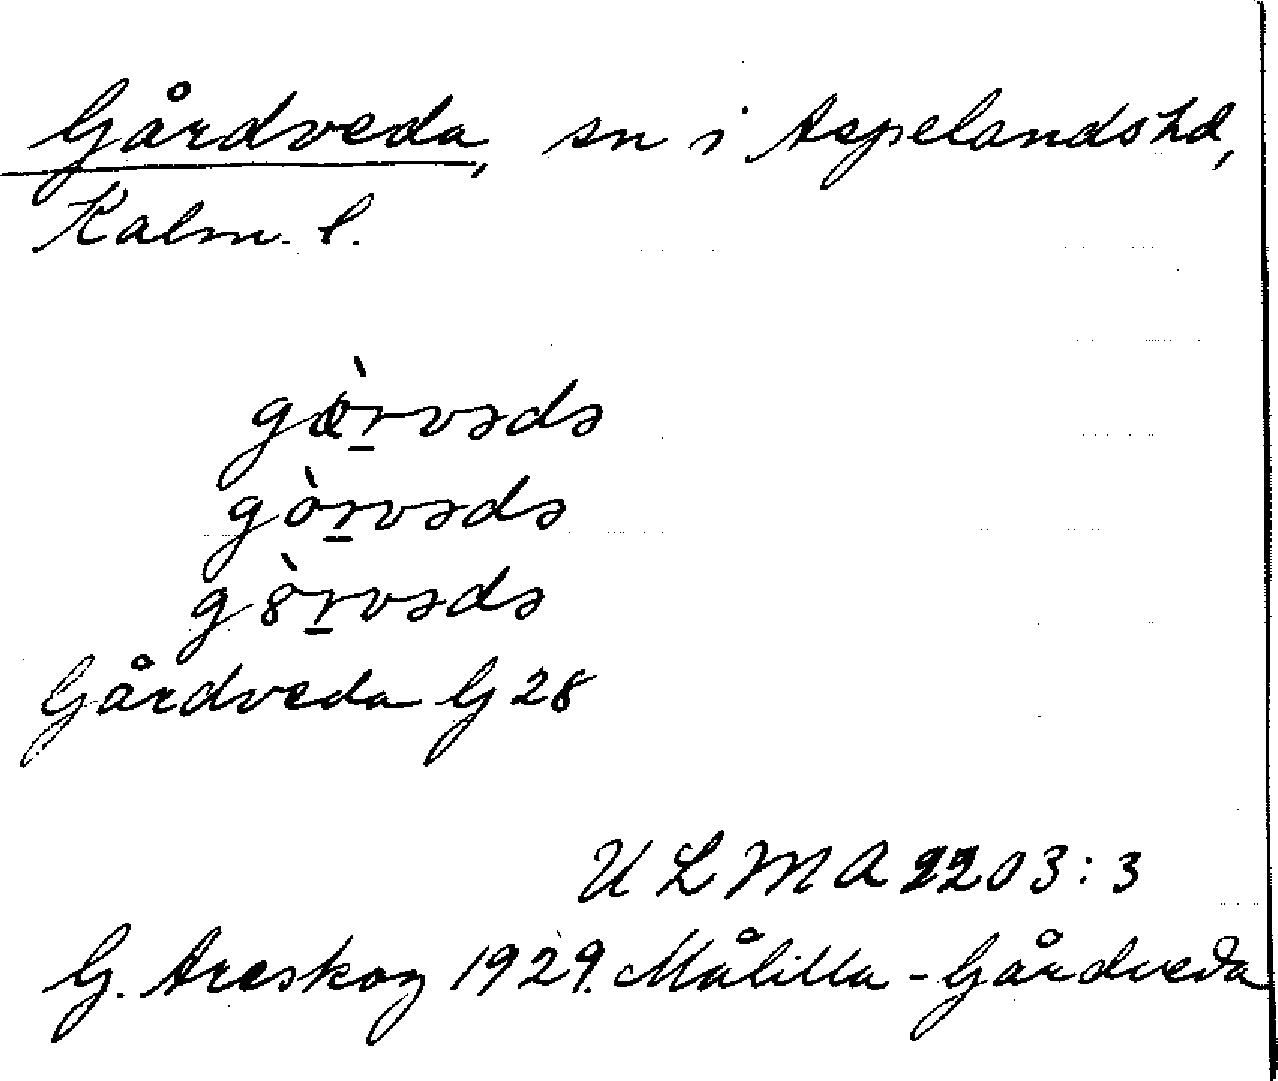 Gårdveda, sn i Aspelands hd,
Kalm. l.
gɑ̀r̲vədə
gòr̲vədə
g8̀r̲vədə
Gårdveda G 28
ULMA 2203:3
G. Areskog 1929. Målilla - Gårdveda